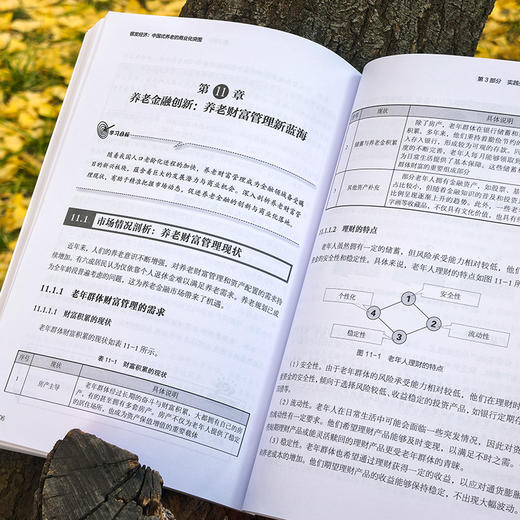 银发经济：中国式养老的商业化突围
第 11 章
养老金融创新：养老财富管理新蓝海
学习目标
随着我国人口老龄化进程的加快，养老财富管理成为金融领域备受瞩
目的新兴板块，蕴含着巨大的发展潜力与商业机会。深入剖析养老财富管
理现状，有助于精准把握市场动态，促进养老金融的创新与商业化落地。
11.1 市场情况剖析：养老财富管理现状
近年来，人们的养老意识不断增强，对养老财富管理和资产配置的需求持
续增加。有六成居民认为仅依靠个人退休金难以满足养老需求。养老规划已成
为全年龄段普遍考虑的问题，这为养老金融市场带来了机遇。
11.1.1 老年群体财富管理的需求
11.1.1.1 财富积累的现状
老年群体财富积累的现状如表 11-1 所示。
表 11-1 财富积累的现状
序号 现状 具体说明
1 房产主导 老年群体经过长期的奋斗与财富积累，大都拥有自己的房
产，有的甚至拥有多套房产。房产不仅为老年人提供了稳定
的居住场所，也成为资产保值增值的重要载体
06
第 3 部分 实践
现状 具体说明
2 储蓄与养老金积累 除了房产，老年群体在银行储蓄和
积累。多年来，他们秉持着勤俭节约的
人存入银行，形成较为可观的存款。
度的不断完善，老年人每月能够领取
为日常生活提供了基本保障。这些储蓄
体财富的重要组成部分
3 其他资产补充 部分老年人拥有金融资产，如股票、基
占比较小，但随着金融知识的普及和投
比例呈现逐渐上升的趋势。此外，一些老
字画等收藏品，不仅具有文化价值，也具有
11.1.1.2 理财的特点
老年人虽然拥有一定的储蓄，但风险承受能力相对较低，他们在
资金的安全性和稳定性。具体来说，老年人理财的特点如图 11-1
个性化 安全性
1
2
3
4
稳定性 流动性
图 11-1 老年人理财的特点
（1）安全性。由于老年群体的风险承受能力相对较低，他们在理财时
重资金的安全性，倾向于选择风险较低、收益稳定的投资产品，如银行定期存
（2）流动性。老年人在日常生活中可能会面临一些突发情况，因此对资
流动性有一定要求。他们希望理财产品能够及时变现，以满足不时之需。
短期理财产品或能灵活赎回的理财产品更受老年群体的青睐。
（3）稳定性。老年群体也希望通过理财获得一定的收益，以应对通货膨胀
养老成本的增加。他们期望理财产品的收益能够保持稳定，不出现大幅波动。